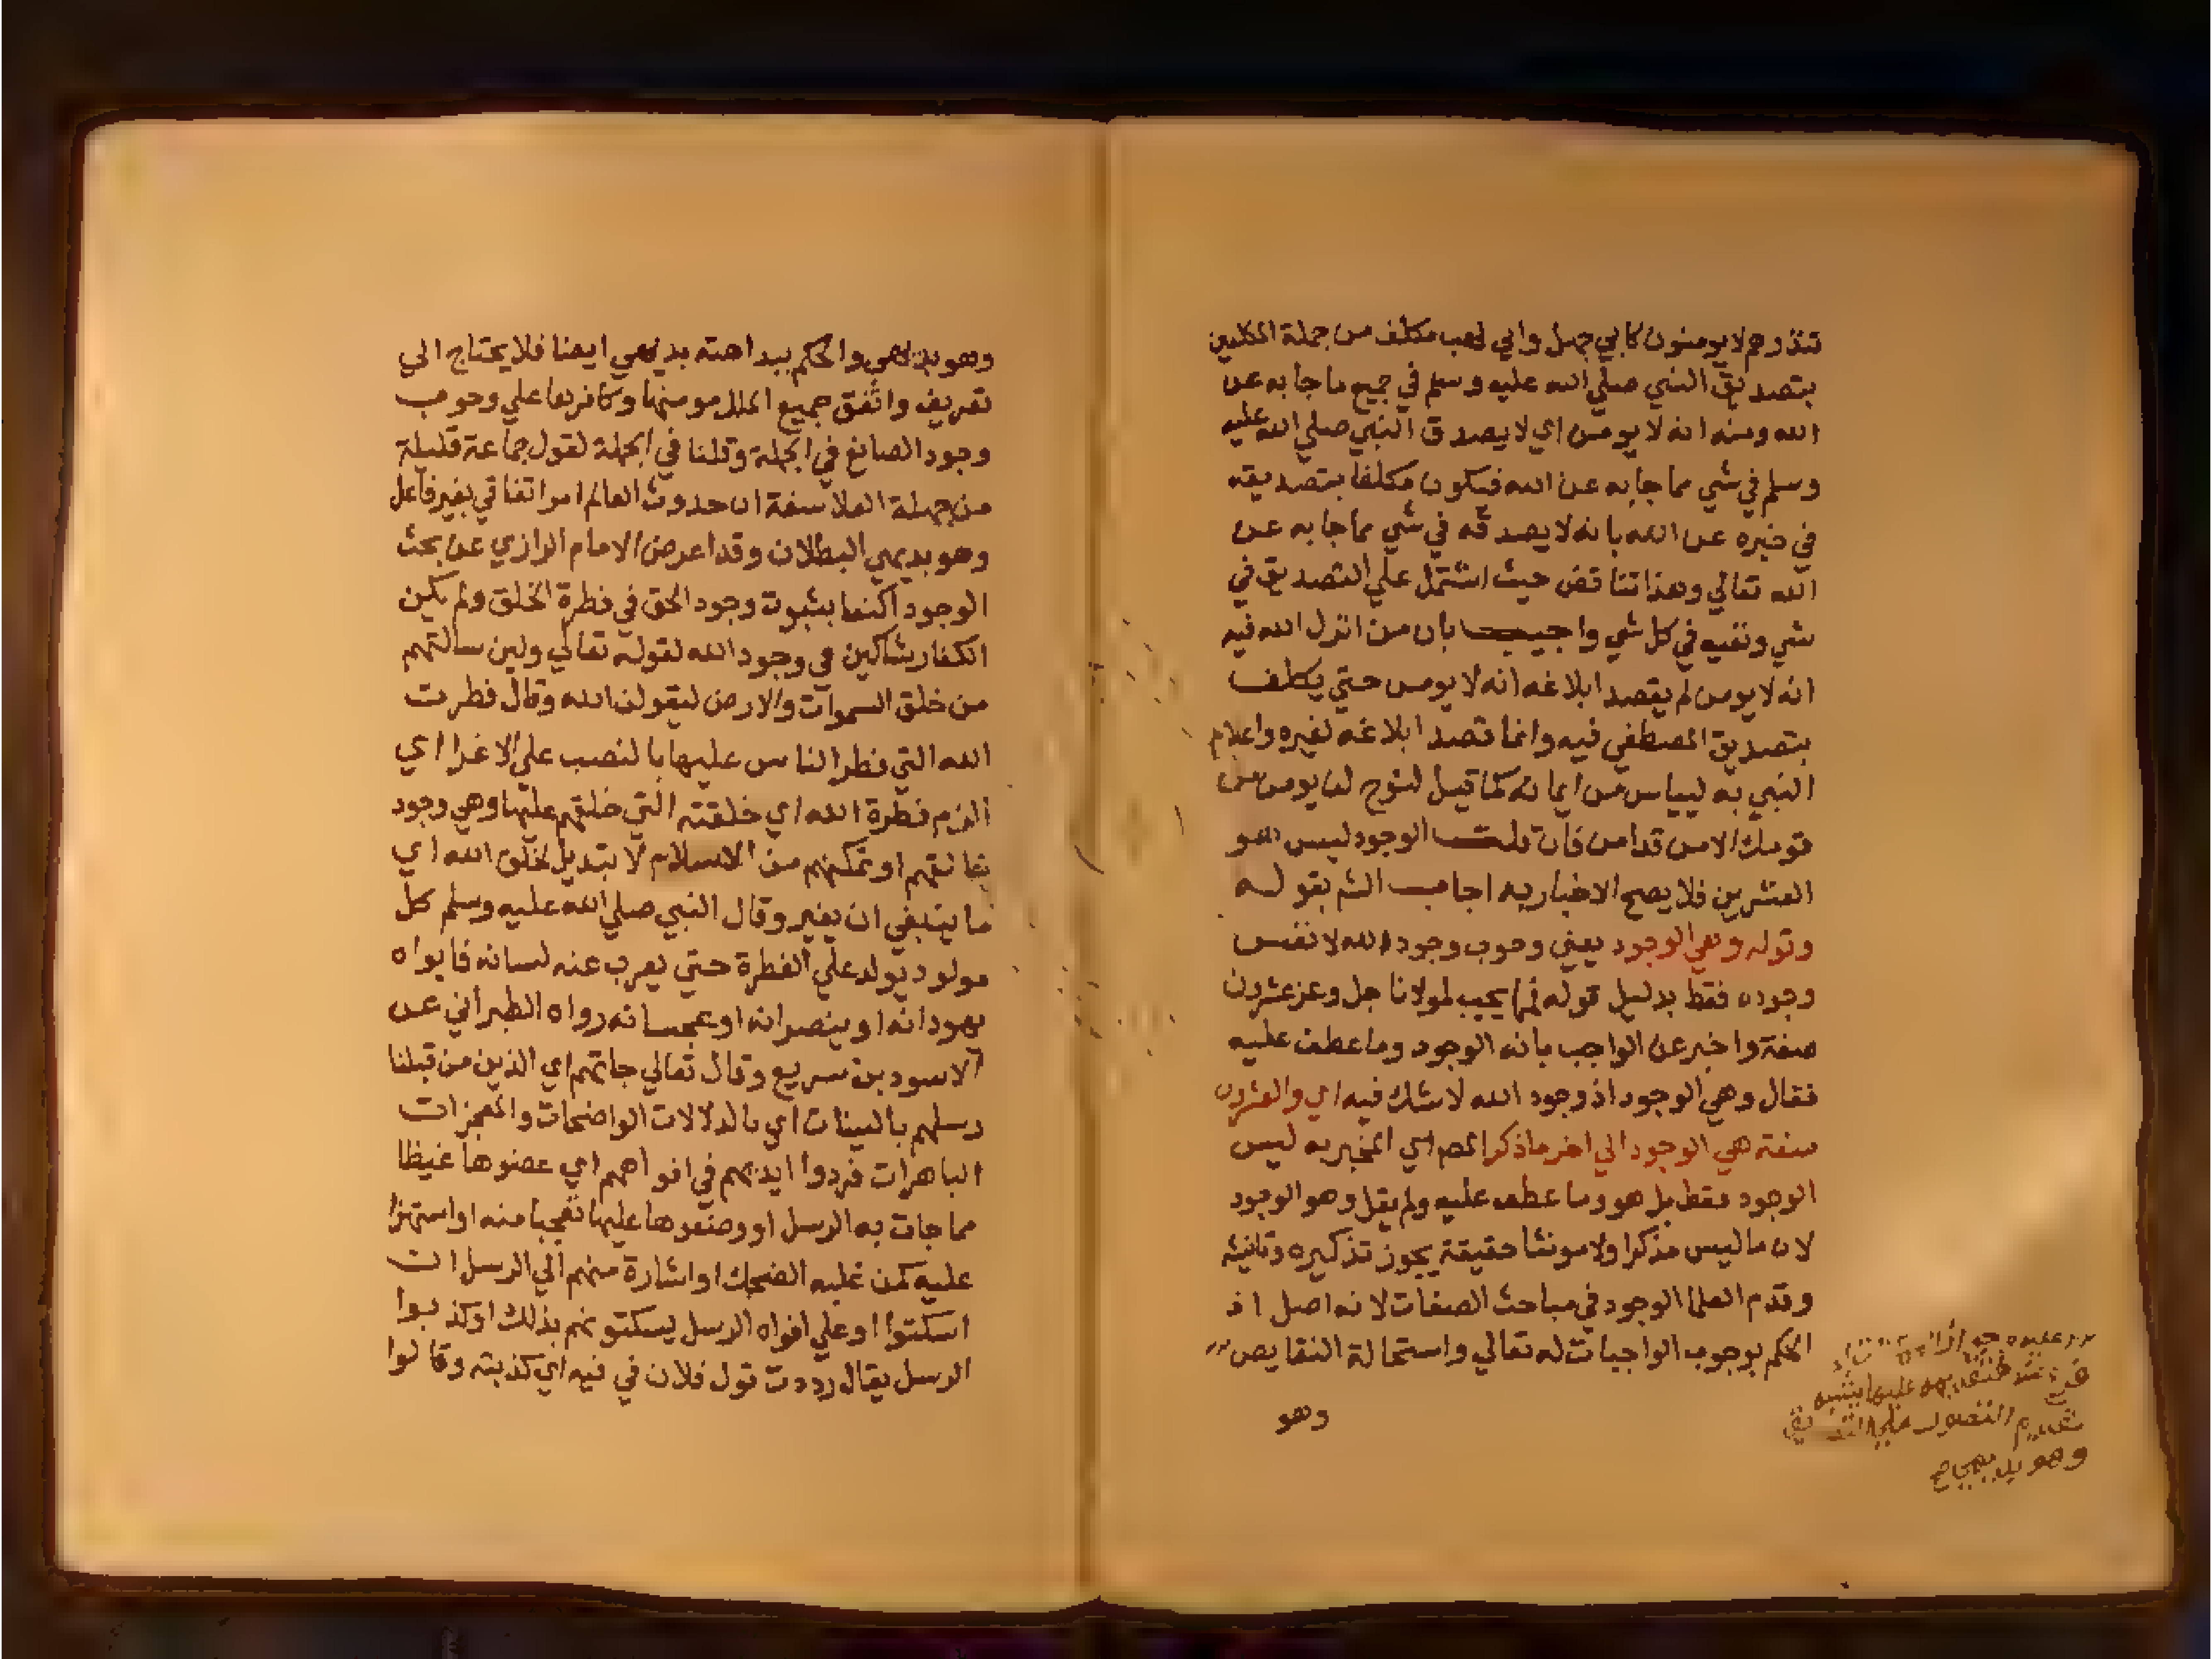 تنذرهم لا يومنون كابي جهل وابي لهب مكلف من جملة المكلفين
بتصديق النبي صلي الله عليه وسلم في جميع ما جا به عن
الله ومنه انه لا يومن اي لا يصدق النبي صلي الله عليه
وسلم في شي مما جا به عن الله فيكون مكلفا بتصديقه
في خبره عن الله بانه لا يصدقه في شي مما جا به عن
الله تعالي وهذا تناقض حيث اشتمل علي التصديق في
شي ونفيه في كل شي واجيب بان من انزل الله فيه
انه لا يومن لم يقصد ابلاغه انه لا يومن حتي يكلف
بتصديق المصطفي فيه وانما قصد ابلاغه لغيره واعلام
النبي به لييأس من ايمانه كما قيل لنوح لن يومن من
قومك الا من قد امن فان قلت الوجود ليس هو
العشرين فلا يصح الاخبار به اجاب الشم بقوله
وقوله وهي الوجود يعني وجوب وجود الله لا نفس
وجوده فقط بدليل قوله فمما يجب لمولانا جل وعز عشرون
صفة واخبر عن الواجب بانه الوجود وما عطف عليه
فقال وهي الوجود اذ وجود الله لا شك فيه اي والعشرون
صفة هي الوجود الي اخر ما ذكر المص اي المخبر به ليس
الوجود فقط بل هو وما عطف عليه ولم يقل وهو الوجود
لان ما ليس مذكرا ولا مونثا حقيقة يجوز تذكيره وتانيثه
وقدم العلما الوجود في مباحث الصفات لانه اصل اذ
الحكم بوجوب الواجبات له تعالي واستحالة النقايص
وهو
تقديم التصور علي التصديق
وهو بديهي صح
وهو بديهي والحكم ببداهته بديهي ايضا فلا يحتاج الي
تعريف واتفق جميع الملل مومنها وكافرها علي وجوب
وجود الصانع في الجملة وقلنا في الجملة لقول جماعة قليلة
من جهلة الفلاسفة ان حدوث العالم امر اتفاقي بغير فاعل
وهو بديهي البطلان وقد اعرض الامام الرازي عن بحث
الوجود اكتفا بثبوت وجود الحق في فطرة الخلق ولم يكن
الكفار شاكين في وجود الله لقوله تعالي ولين سالتهم
من خلق السموات والارض ليقولن الله وقال فطرت
الله التي فطر الناس عليها بالنصب علي الاغرا اي
الزم فطرة الله اي خلقته التي خلقهم عليها وهي وجود
خالقهم او تمكنهم من الاسلام لا تبديل لخلق الله اي
ما ينبغي ان يغير وقال النبي صلي الله عليه وسلم كل
مولود يولد علي الفطرة حتي يعرب عنه لسانه فابواه
يهودانه او ينصرانه او يمجسانه رواه الطبراني عن
الاسود بن سريع وقال تعالي جاتهم اي الذين من قبلنا
رسلهم بالبينات اي بالدلالات الواضحات والمعجزات
الباهرات فردوا ايديهم في افواههم اي عضوها غيظا
مما جات به الرسل او وضعوها عليها تعجبا منه او استهزا
عليه كمن غلبه الضحك او اشارة منهم الي الرسل ان
اسكتوا او علي افواه الرسل يسكتونهم بذلك او كذبوا
الرسل يقال رددت قول فلان في فيه اي كذبته وقالوا